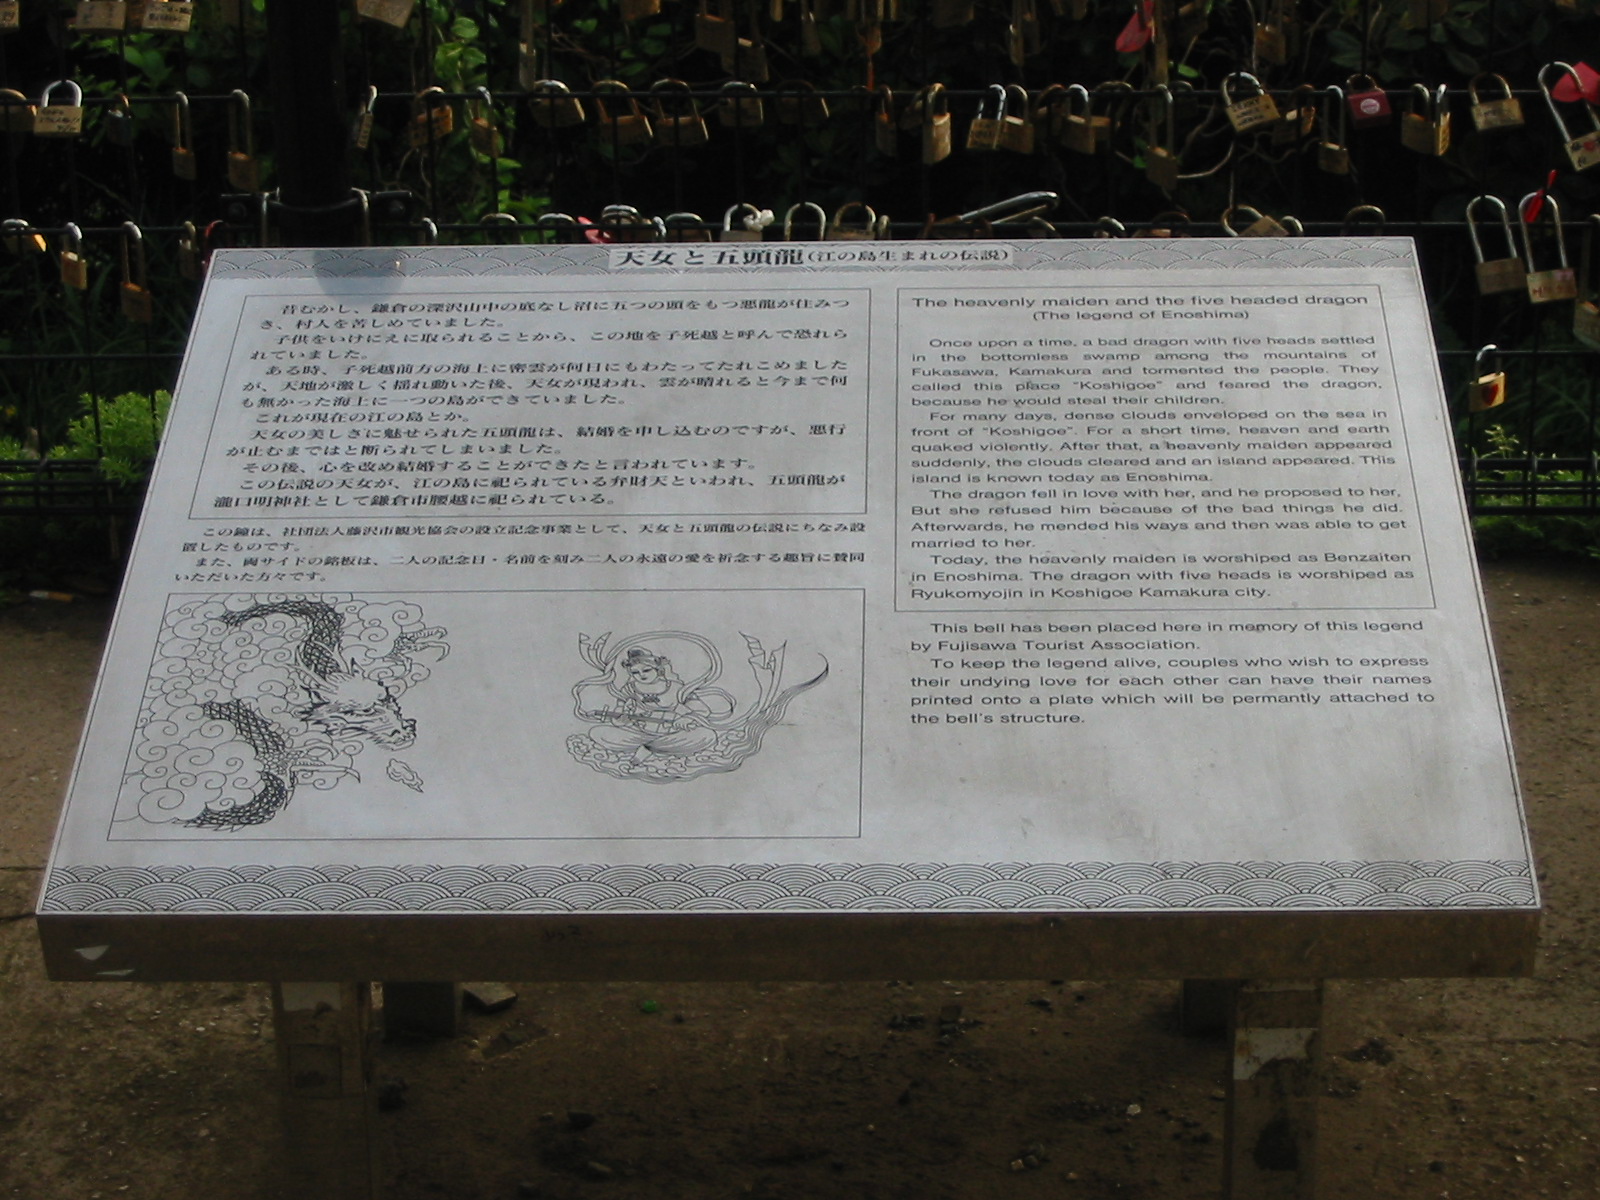 天女と五頭龍(江の島生まれの伝説)
昔むかし、鎌倉の深沢山中の底なし沼に五つの頭をもつ悪龍が住みつ
き、村人を苦しめていました。
子供をいけにえに取られることから、この地を子死越と呼んで恐れら
れていました。
ある時、子死越前方の海上に密雲が何日にもわたってたれこめました
が、天地が激しく揺れ動いた後、天女が現われ、雲が晴れると今まで何
も無かった海上に一つの島ができていました。
これが現在の江の島とか。
天女の美しさに魅せられた五頭龍は、結婚を申し込むのですが、悪行
が止むまではと断られてしまいました。
その後、心を改め結婚することができたと言われています。
この伝説の天女が、江の島に祀られている弁財天といわれ、五頭龍が
瀧口明神社として鎌倉市腰越に祀られている。
この鐘は、社団法人藤沢市観光協会の設立記念事業として、天女と五頭龍の伝説にちなみ設
置したものです。
また、両サイドの銘板は、二人の記念日・名前を刻み二人の永遠の愛を祈念する趣旨に賛同
いただいた方々です。
The heavenly maiden and the five headed dragon
(The legend of Enoshima)
Once upon a time, a bad dragon with five heads settled
in the bottomless swamp among the mountains of
Fukasawa, Kamakura and tormented the people. They
called this place "Koshigoe" and feared the dragon,
because he would steal their children.
For many days, dense clouds enveloped on the sea in
front of "Koshigoe". For a short time, heaven and earth
quaked violently. After that, a heavenly maiden appeared
suddenly, the clouds cleared and an island appeared. This
island is known today as Enoshima.
The dragon fell in love with her, and he proposed to her,
But she refused him because of the bad things he did.
Afterwards, he mended his ways and then was able to get
married to her.
Today, the heavenly maiden is worshiped as Benzaiten
in Enoshima. The dragon with five heads is worshiped as
Ryukomyojin in Koshigoe Kamakura city.
This bell has been placed here in memory of this legend
by Fujisawa Tourist Association.
To keep the legend alive, couples who wish to express
their undying love for each other can have their names
printed onto a plate which will be permantly attached to
the bell's structure.